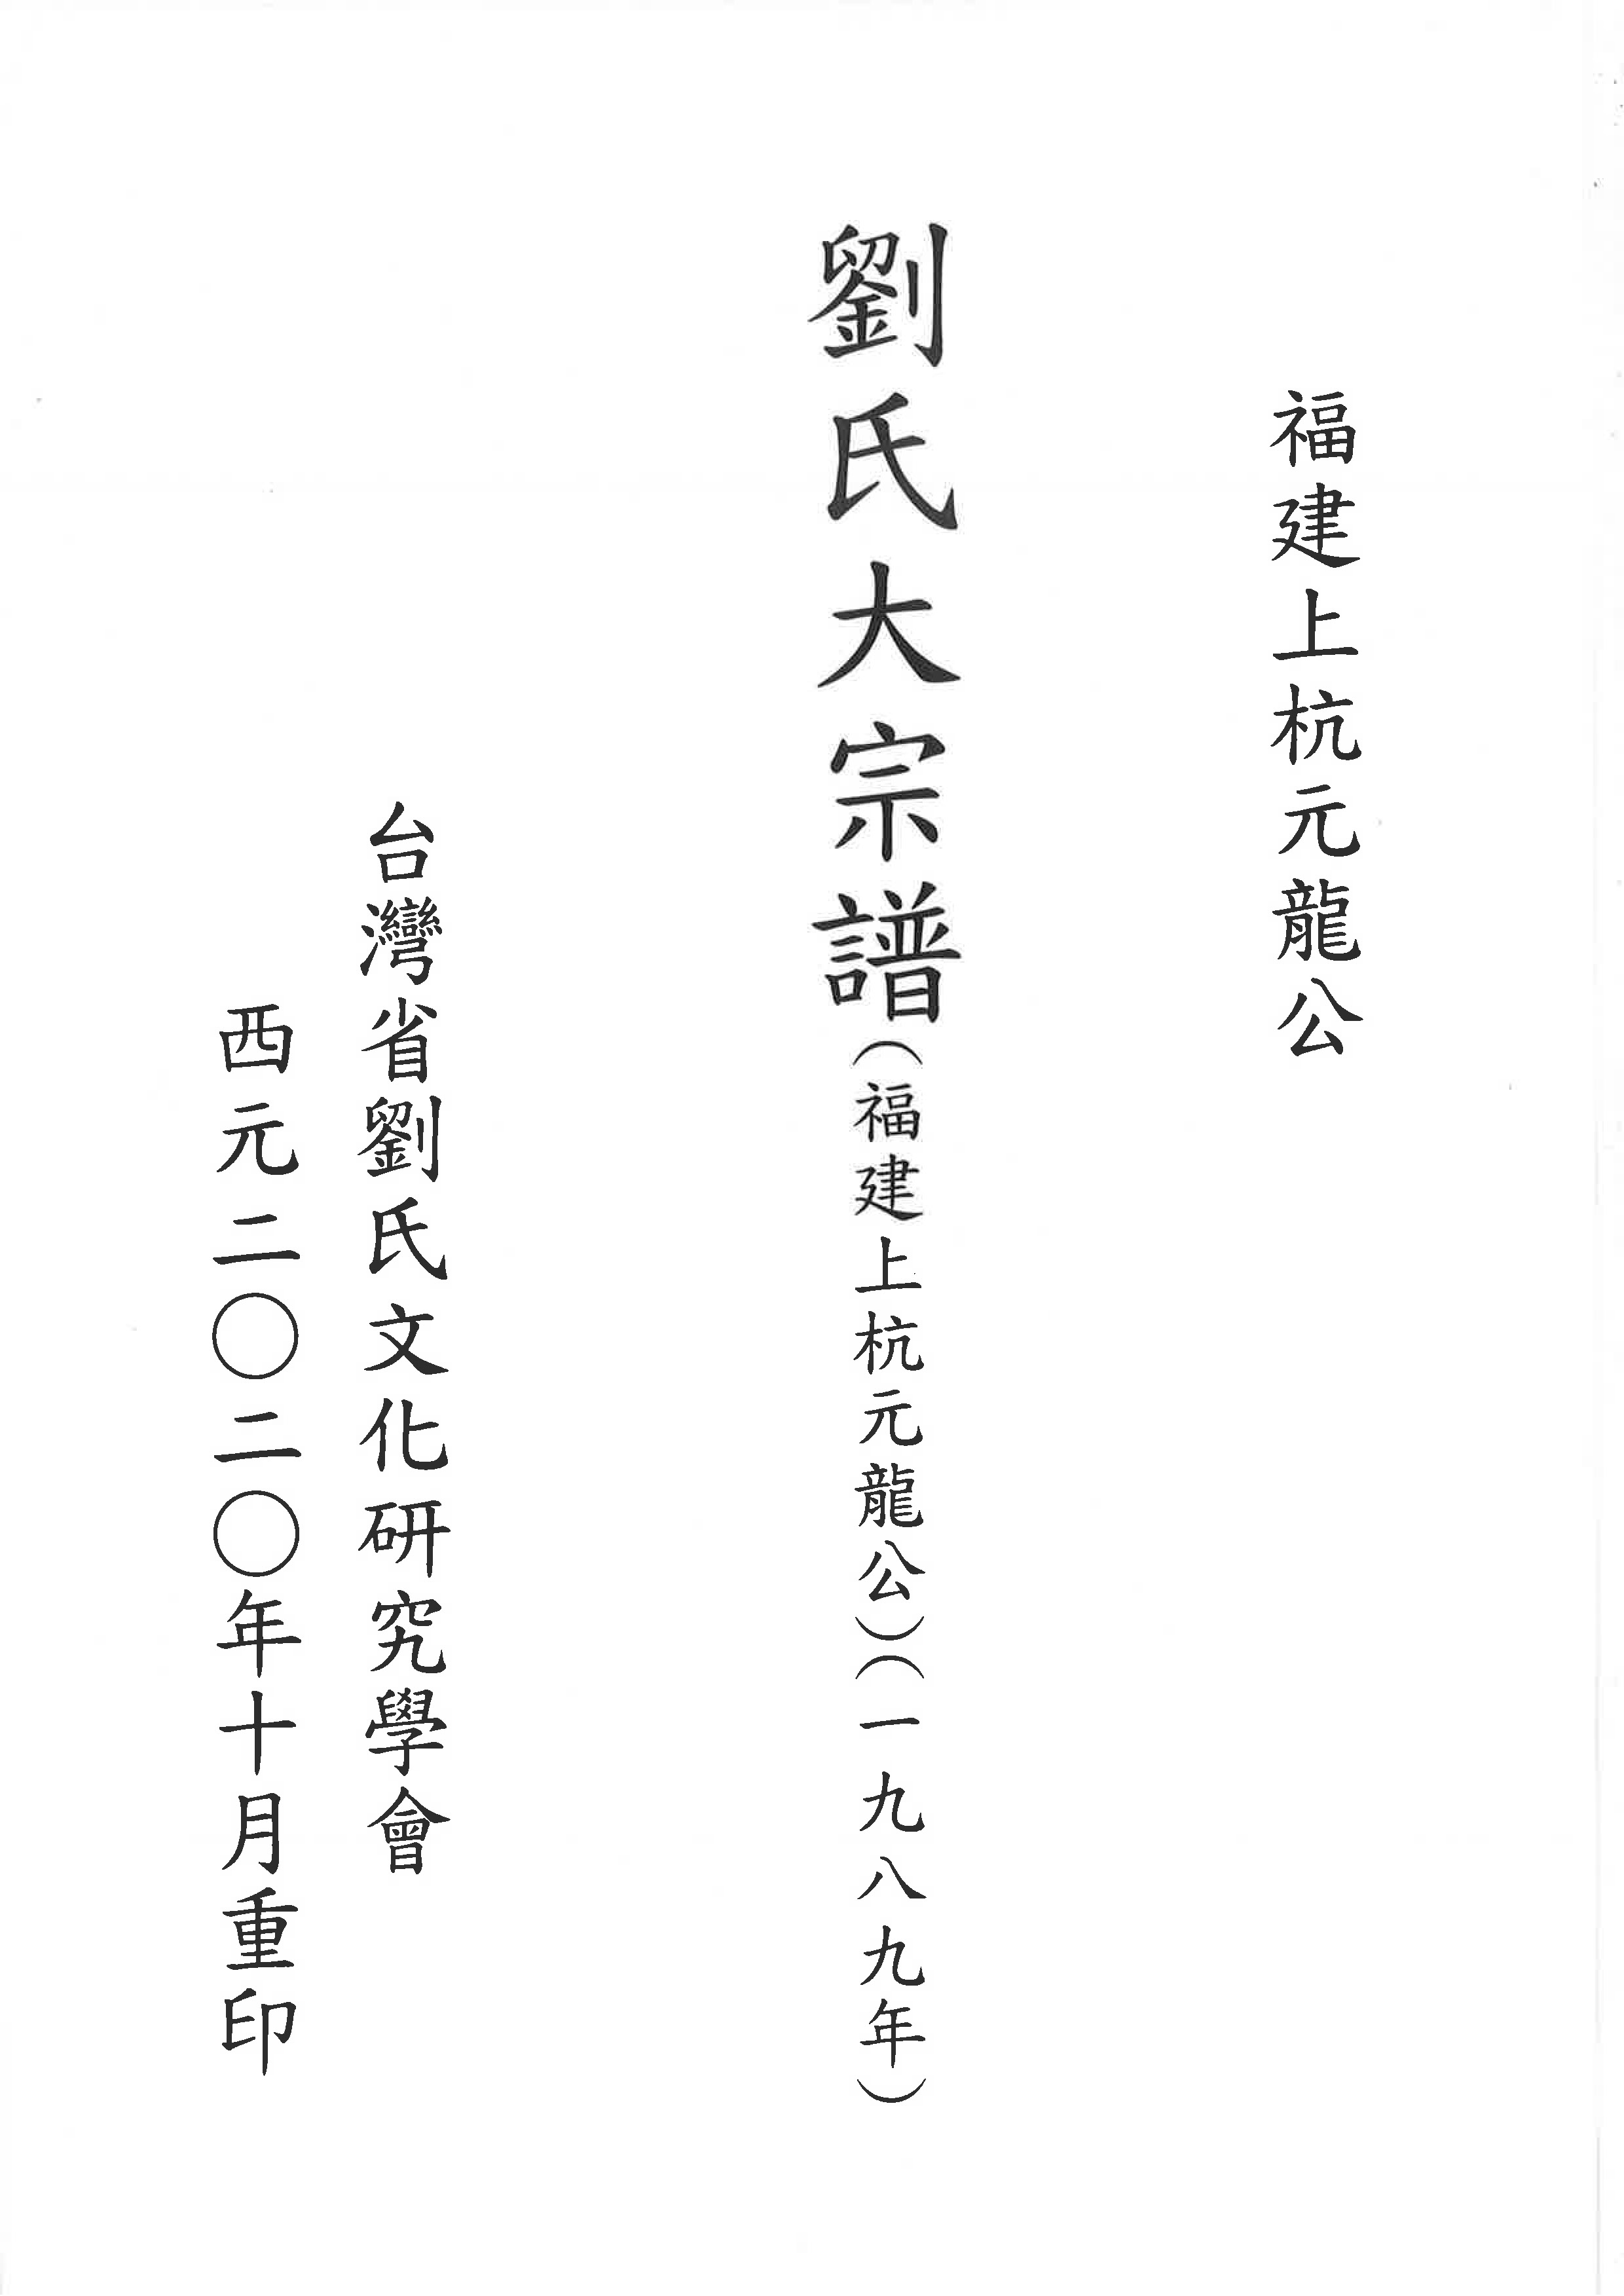 福建上杭元龍公
劉氏大宗譜（福建上杭元龍公）（一九八九年）
台灣省劉氏文化研究學會
西元二〇二〇年十月重印